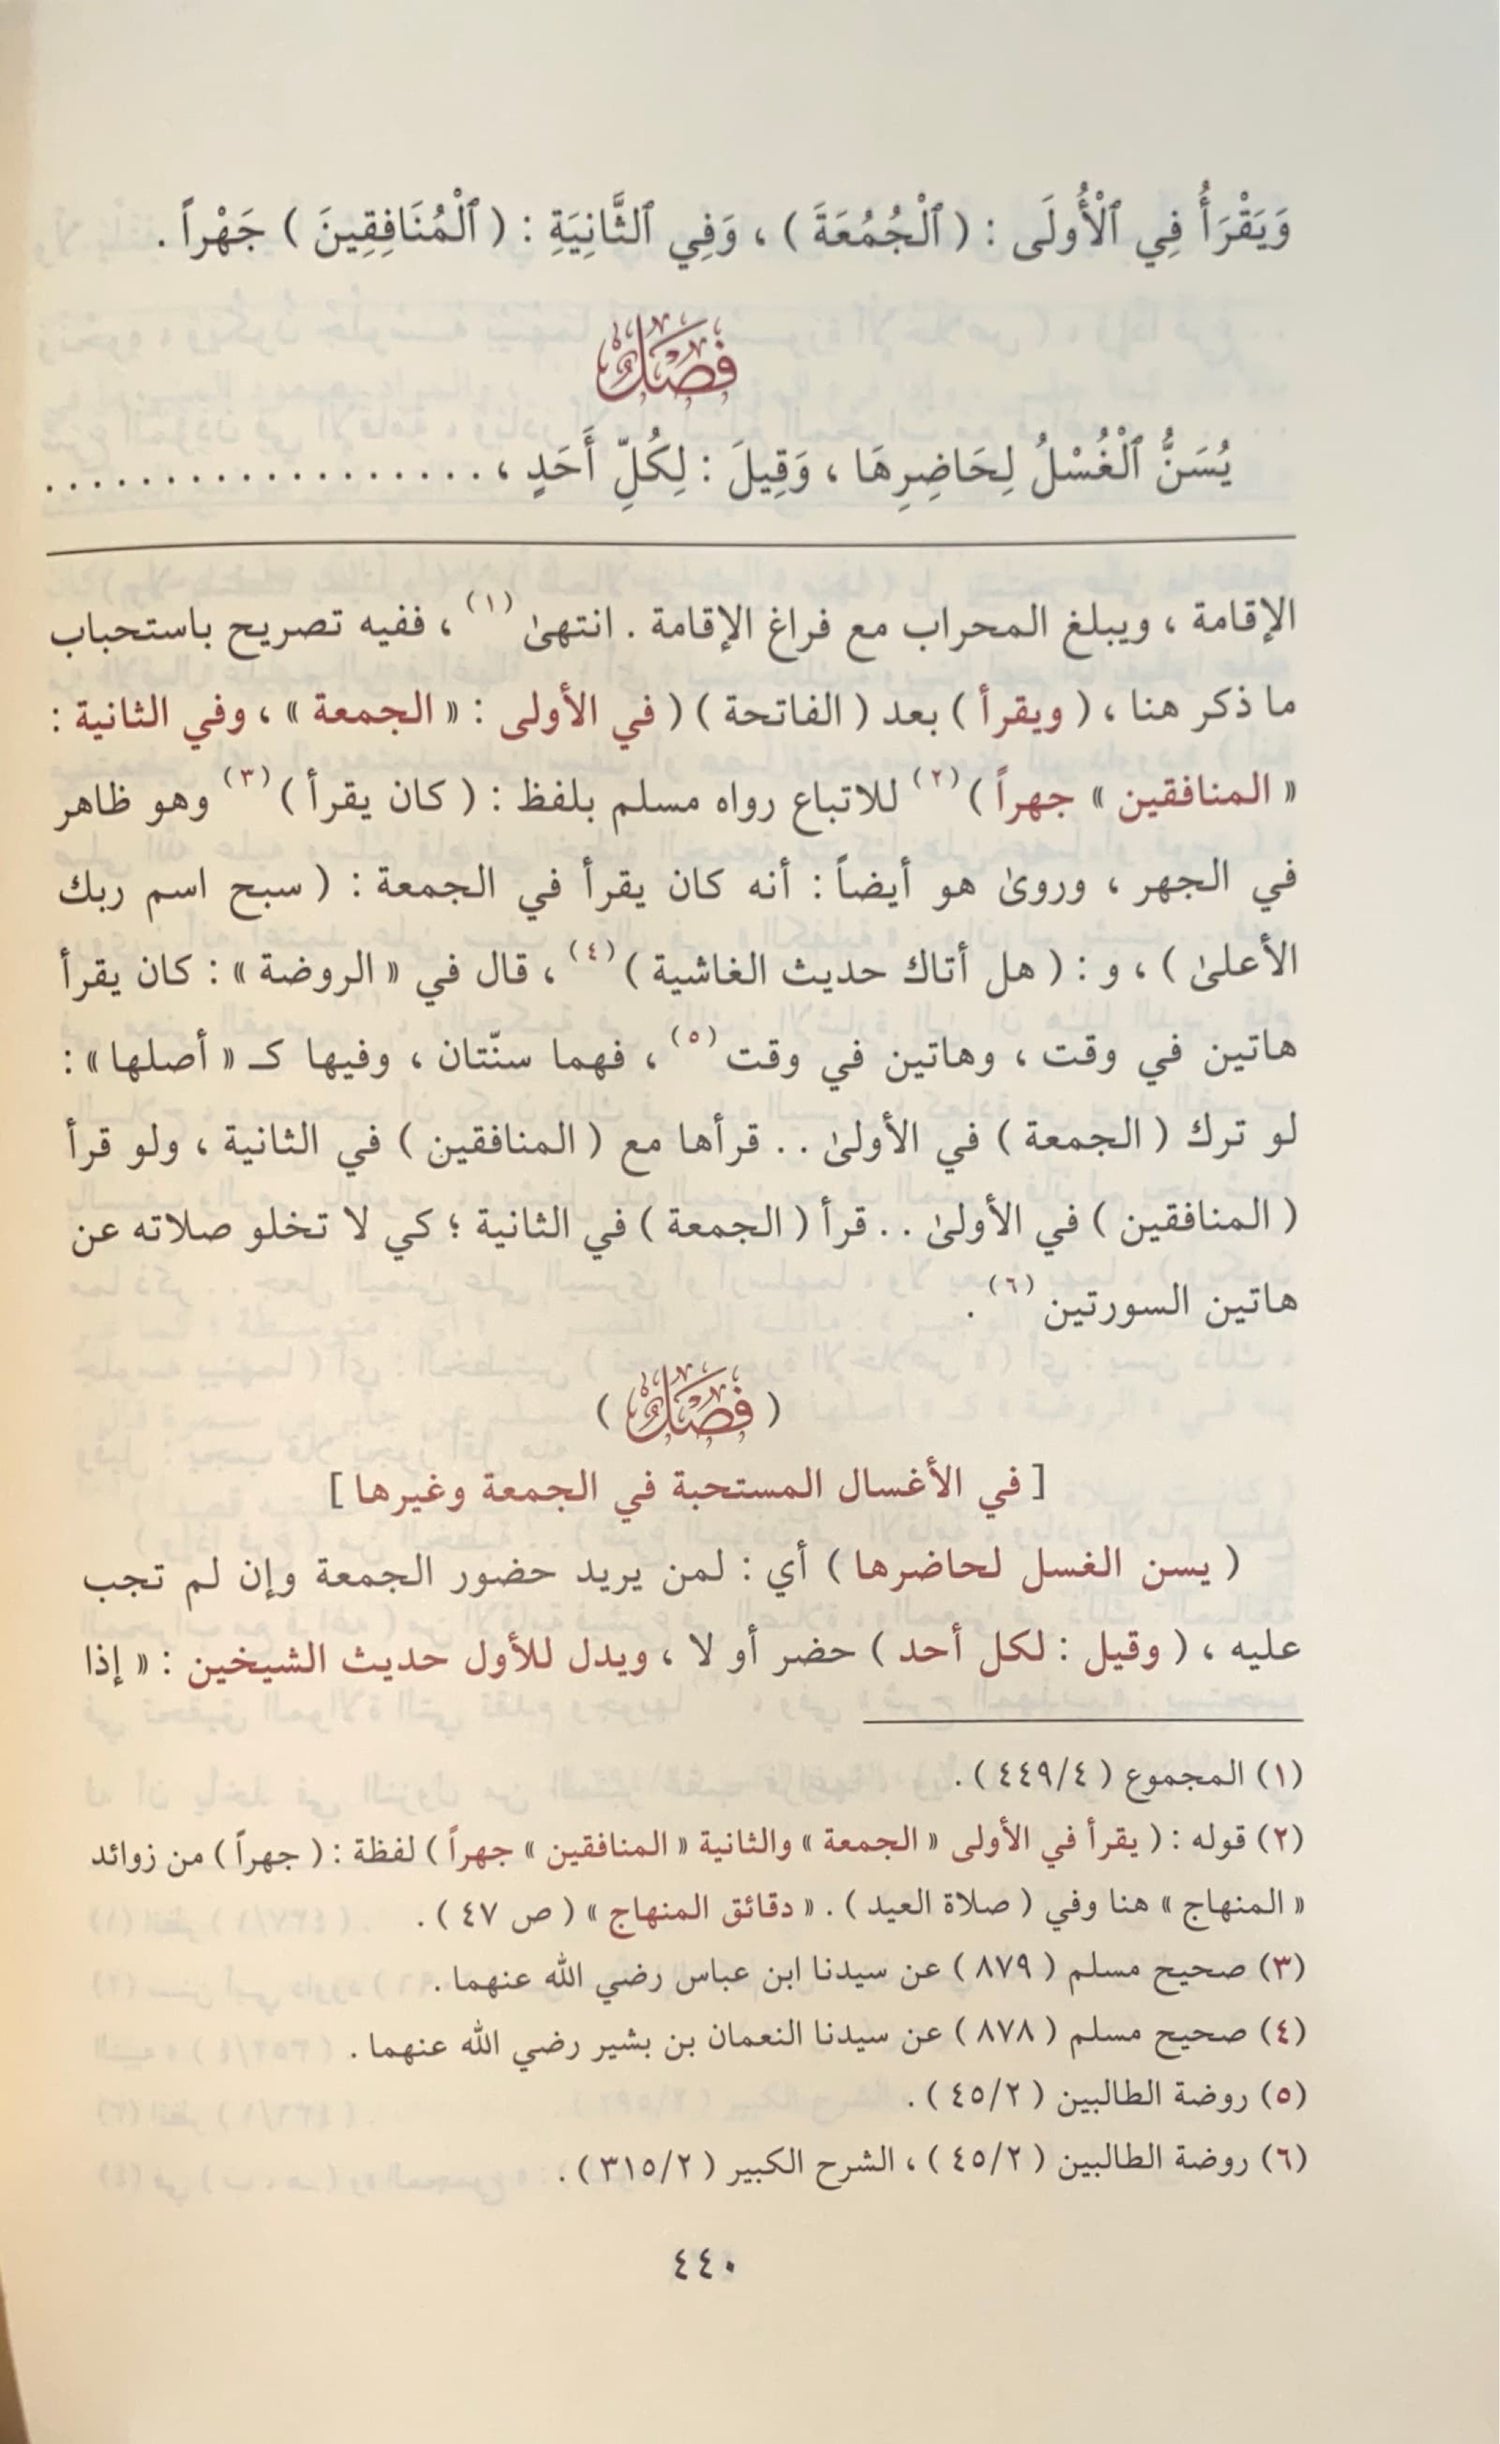 وَيَقْرَأُ فِي ٱلْأُولَى : ( ٱلْجُمُعَةَ ) ، وَفِي ٱلثَّانِيَةِ : ( ٱلْمُنَافِقِينَ ) جَهْراً .
فصل
يُسَنُّ ٱلْغُسْلُ لِحَاضِرِهَا ، وَقِيلَ : لِكُلِّ أَحَدٍ ، . . . . . . . . . . . . . . . . . .
الإقامة ، ويبلغ المحراب مع فراغ الإقامة . انتهىٰ (١) ، ففيه تصريح باستحباب
ما ذكر هنا ، ( ويقرأ ) بعد ( الفاتحة ) ( في الأولى : « الجمعة » ، وفي الثانية :
« المنافقين » جهراً ) (٢) للاتباع رواه مسلم بلفظ : ( كان يقرأ ) (٣) وهو ظاهر
في الجهر ، وروىٰ هو أيضاً : أنه كان يقرأ في الجمعة : ( سبح اسم ربك
الأعلىٰ ) ، و : ( هل أتاك حديث الغاشية ) (٤) ، قال في « الروضة » : كان يقرأ
هاتين في وقت ، وهاتين في وقت (٥) ، فهما سنّتان ، وفيها كـ « أصلها » :
لو ترك ( الجمعة ) في الأولىٰ . . قرأها مع ( المنافقين ) في الثانية ، ولو قرأ
( المنافقين ) في الأولىٰ . . قرأ ( الجمعة ) في الثانية ؛ كي لا تخلو صلاته عن
هاتين السورتين (٦) .
( فصل )
[ في الأغسال المستحبة في الجمعة وغيرها ]
( يسن الغسل لحاضرها ) أي : لمن يريد حضور الجمعة وإن لم تجب
عليه ، ( وقيل : لكل أحد ) حضر أو لا ، ويدل للأول حديث الشيخين : « إذا
(١) المجموع ( ٤٤٩/٤ ) .
(٢) قوله : ( يقرأ في الأولى « الجمعة » والثانية « المنافقين » جهراً ) لفظة : ( جهراً ) من زوائد
« المنهاج » هنا وفي ( صلاة العيد ) . « دقائق المنهاج » ( ص ٤٧ ) .
(٣) صحيح مسلم ( ٨٧٩ ) عن سيدنا ابن عباس رضي الله عنهما .
(٤) صحيح مسلم ( ٨٧٨ ) عن سيدنا النعمان بن بشير رضي الله عنهما .
(٥) روضة الطالبين ( ٤٥/٢ ) .
(٦) روضة الطالبين ( ٤٥/٢ ) ، الشرح الكبير ( ٣١٥/٢ ) .
٤٤٠